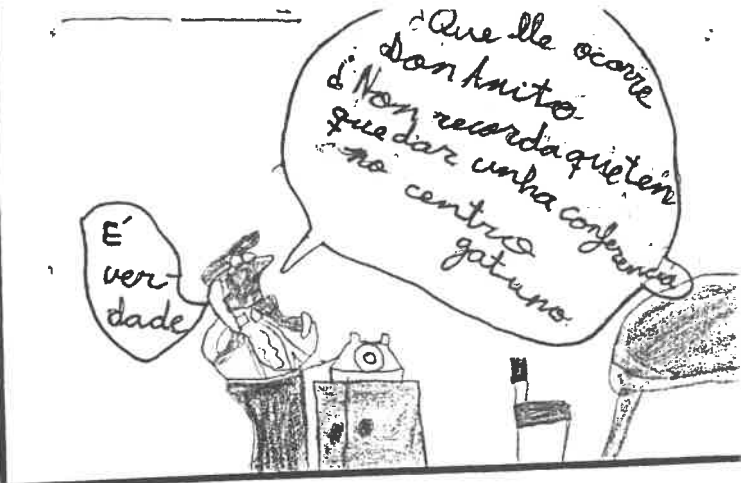 ¿Que lle ocorre
Don Anito
¿Non recorda que ten
que dar unha conferencia
no centro
gatuno.
É
ver-
dade